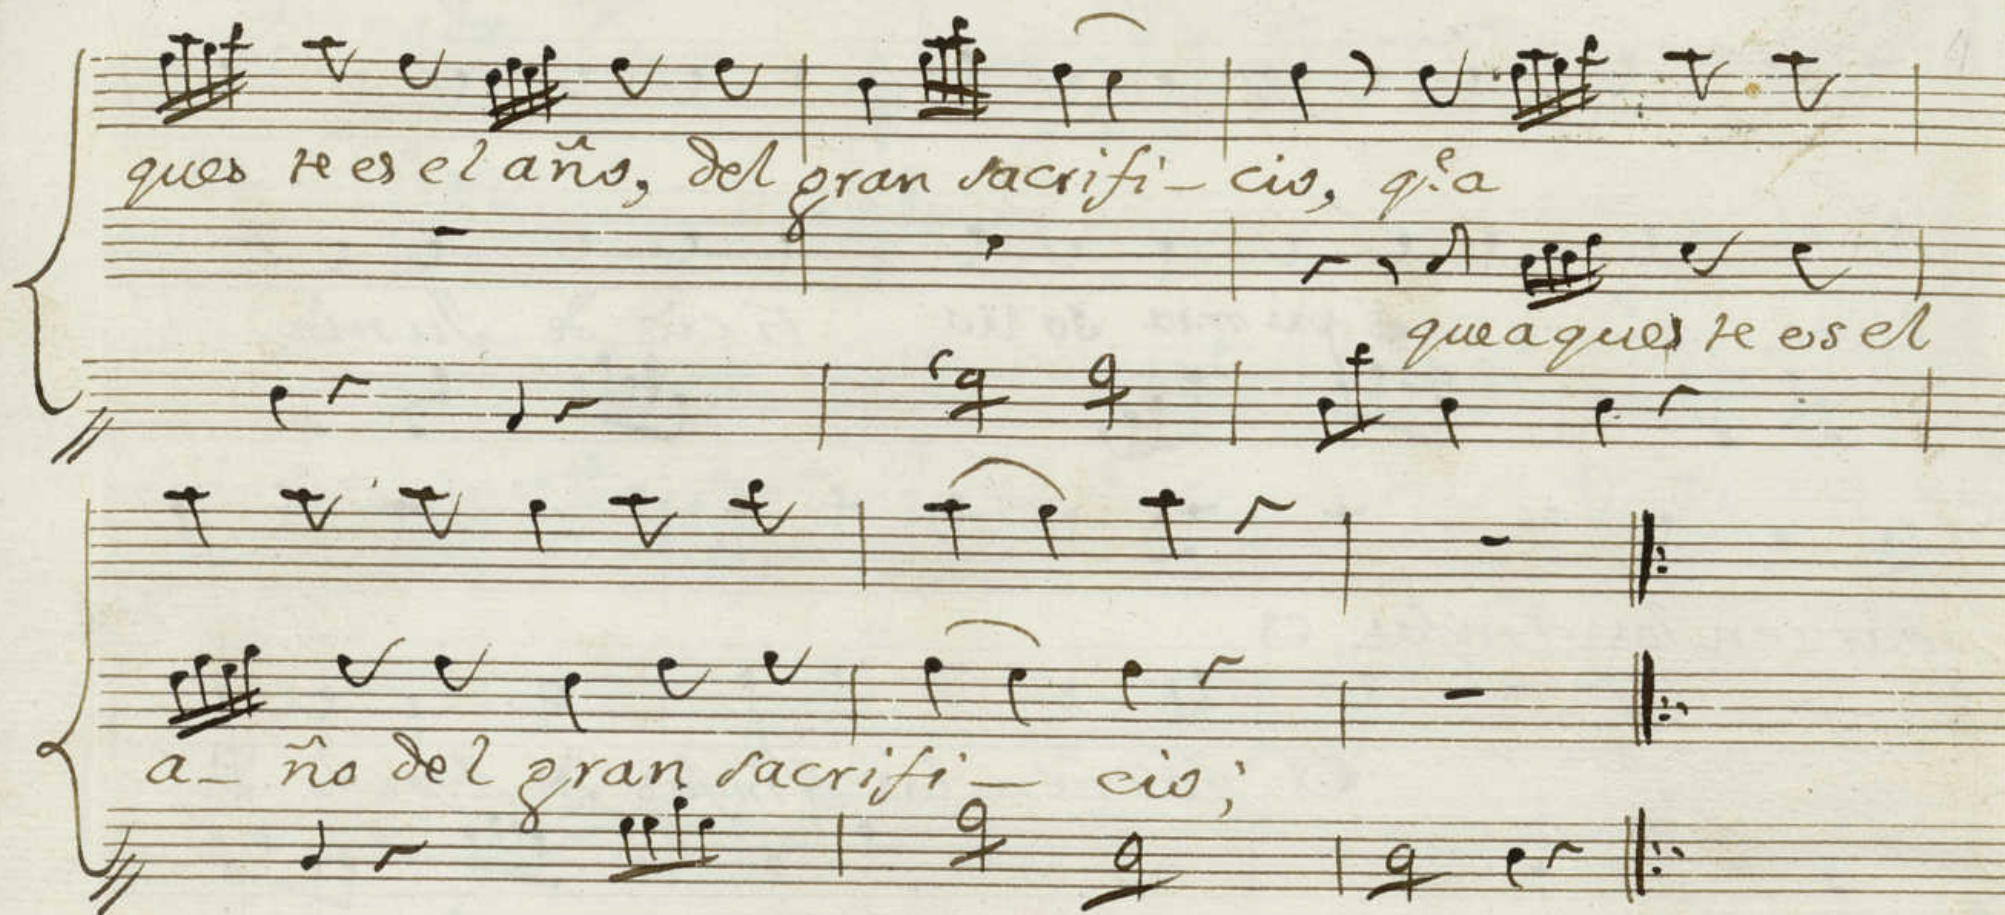 ques te es el año, del gran sacrifi- cio, q.e a
que a ques te es el
a- ño del gran sacrifi- cio;